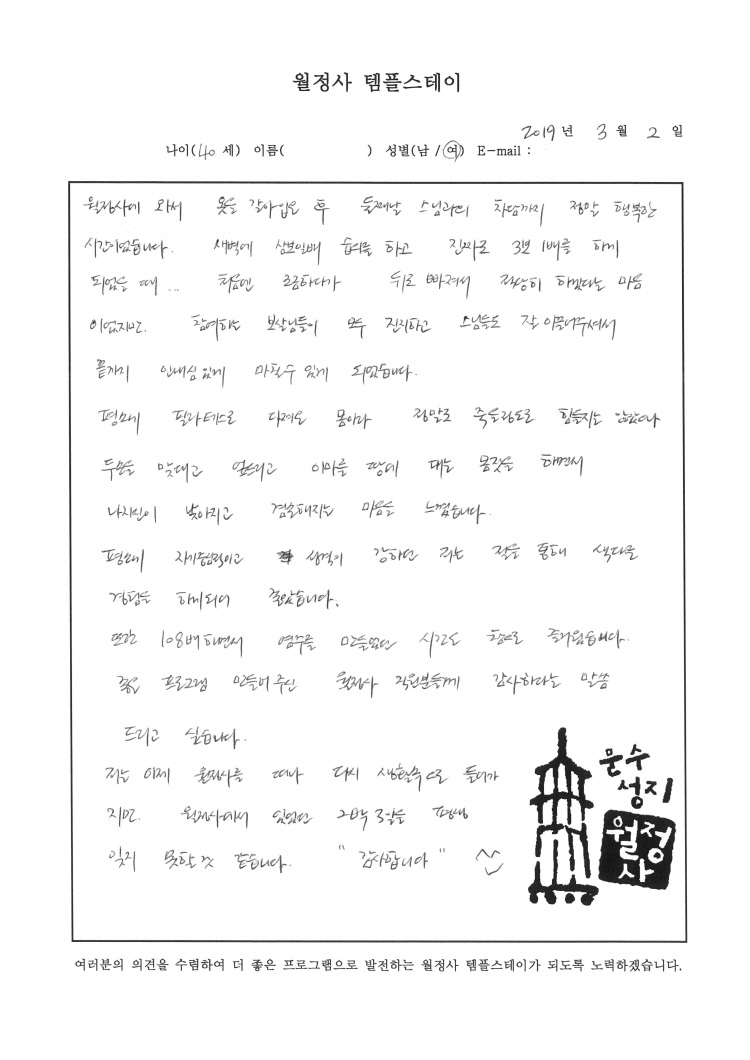 월정사 템플스테이
2019 년 3 월 2 일
나이(40 세) 이름( ) 성별(남 / 여) E-mail :
월정사에 와서 옷을 갈아입은 후 둘째날 스님과의 차담까지 정말 행복한
시간이었습니다. 새벽에 삼보일배 습의를 하고 진짜로 3보 1배를 하게
되었을 때 ... 처음엔 조금하다가 뒤로 빠져서 적당히 하겠다는 마음
이었지만. 참여하는 보살님들이 모두 진지하고 스님들도 잘 이끌어주셔서
끝까지 인내심있게 마칠수 있게 되었습니다.
평소에 필라테스로 다져온 몸이라 정말로 죽을정도로 힘들지는 않았으나
두손을 맞대고 엎드리고 이마를 땅에 대는 몸짓을 하면서
나자신이 낮아지고 겸손해지는 마음을 느꼈습니다.
평소에 자기중심적이고 성격이 강하던 저는 절을 통해 색다른
경험을 하게되어 좋았습니다.
또한 108배하면서 염주를 만들었던 시간도 참으로 즐거웠습니다.
좋은 프로그램 만들어주신 월정사 직원분들께 감사하다는 말씀
드리고 싶습니다.
저는 이제 월정사를 떠나 다시 생활속으로 들어가
지만. 월정사에서 있었던 2박 3일을 평생
잊지 못할것 같습니다. " 감사합니다 " ^^
문수
성지
월정
사
여러분의 의견을 수렴하여 더 좋은 프로그램으로 발전하는 월정사 템플스테이가 되도록 노력하겠습니다.